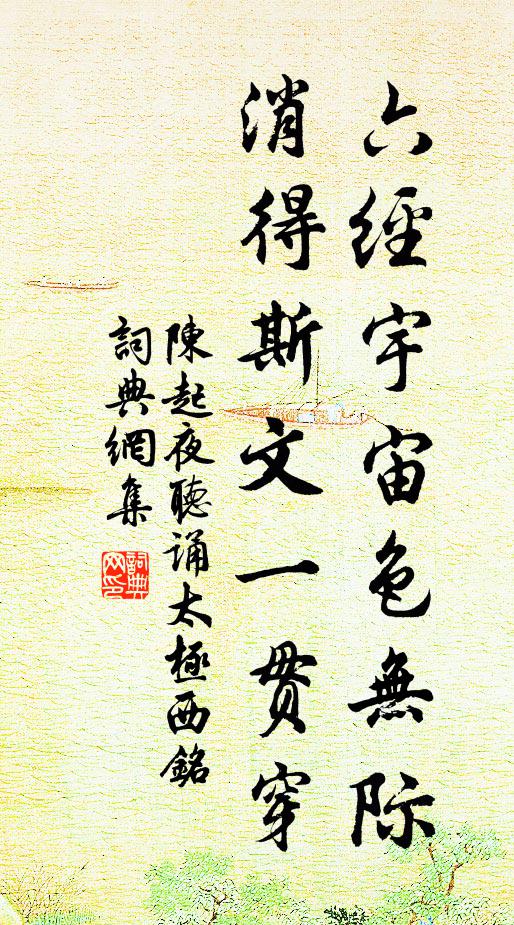 六經宇宙包無際
消得斯文一貫穿
陳起夜聽誦太極西銘
詞典網集
詞典網印